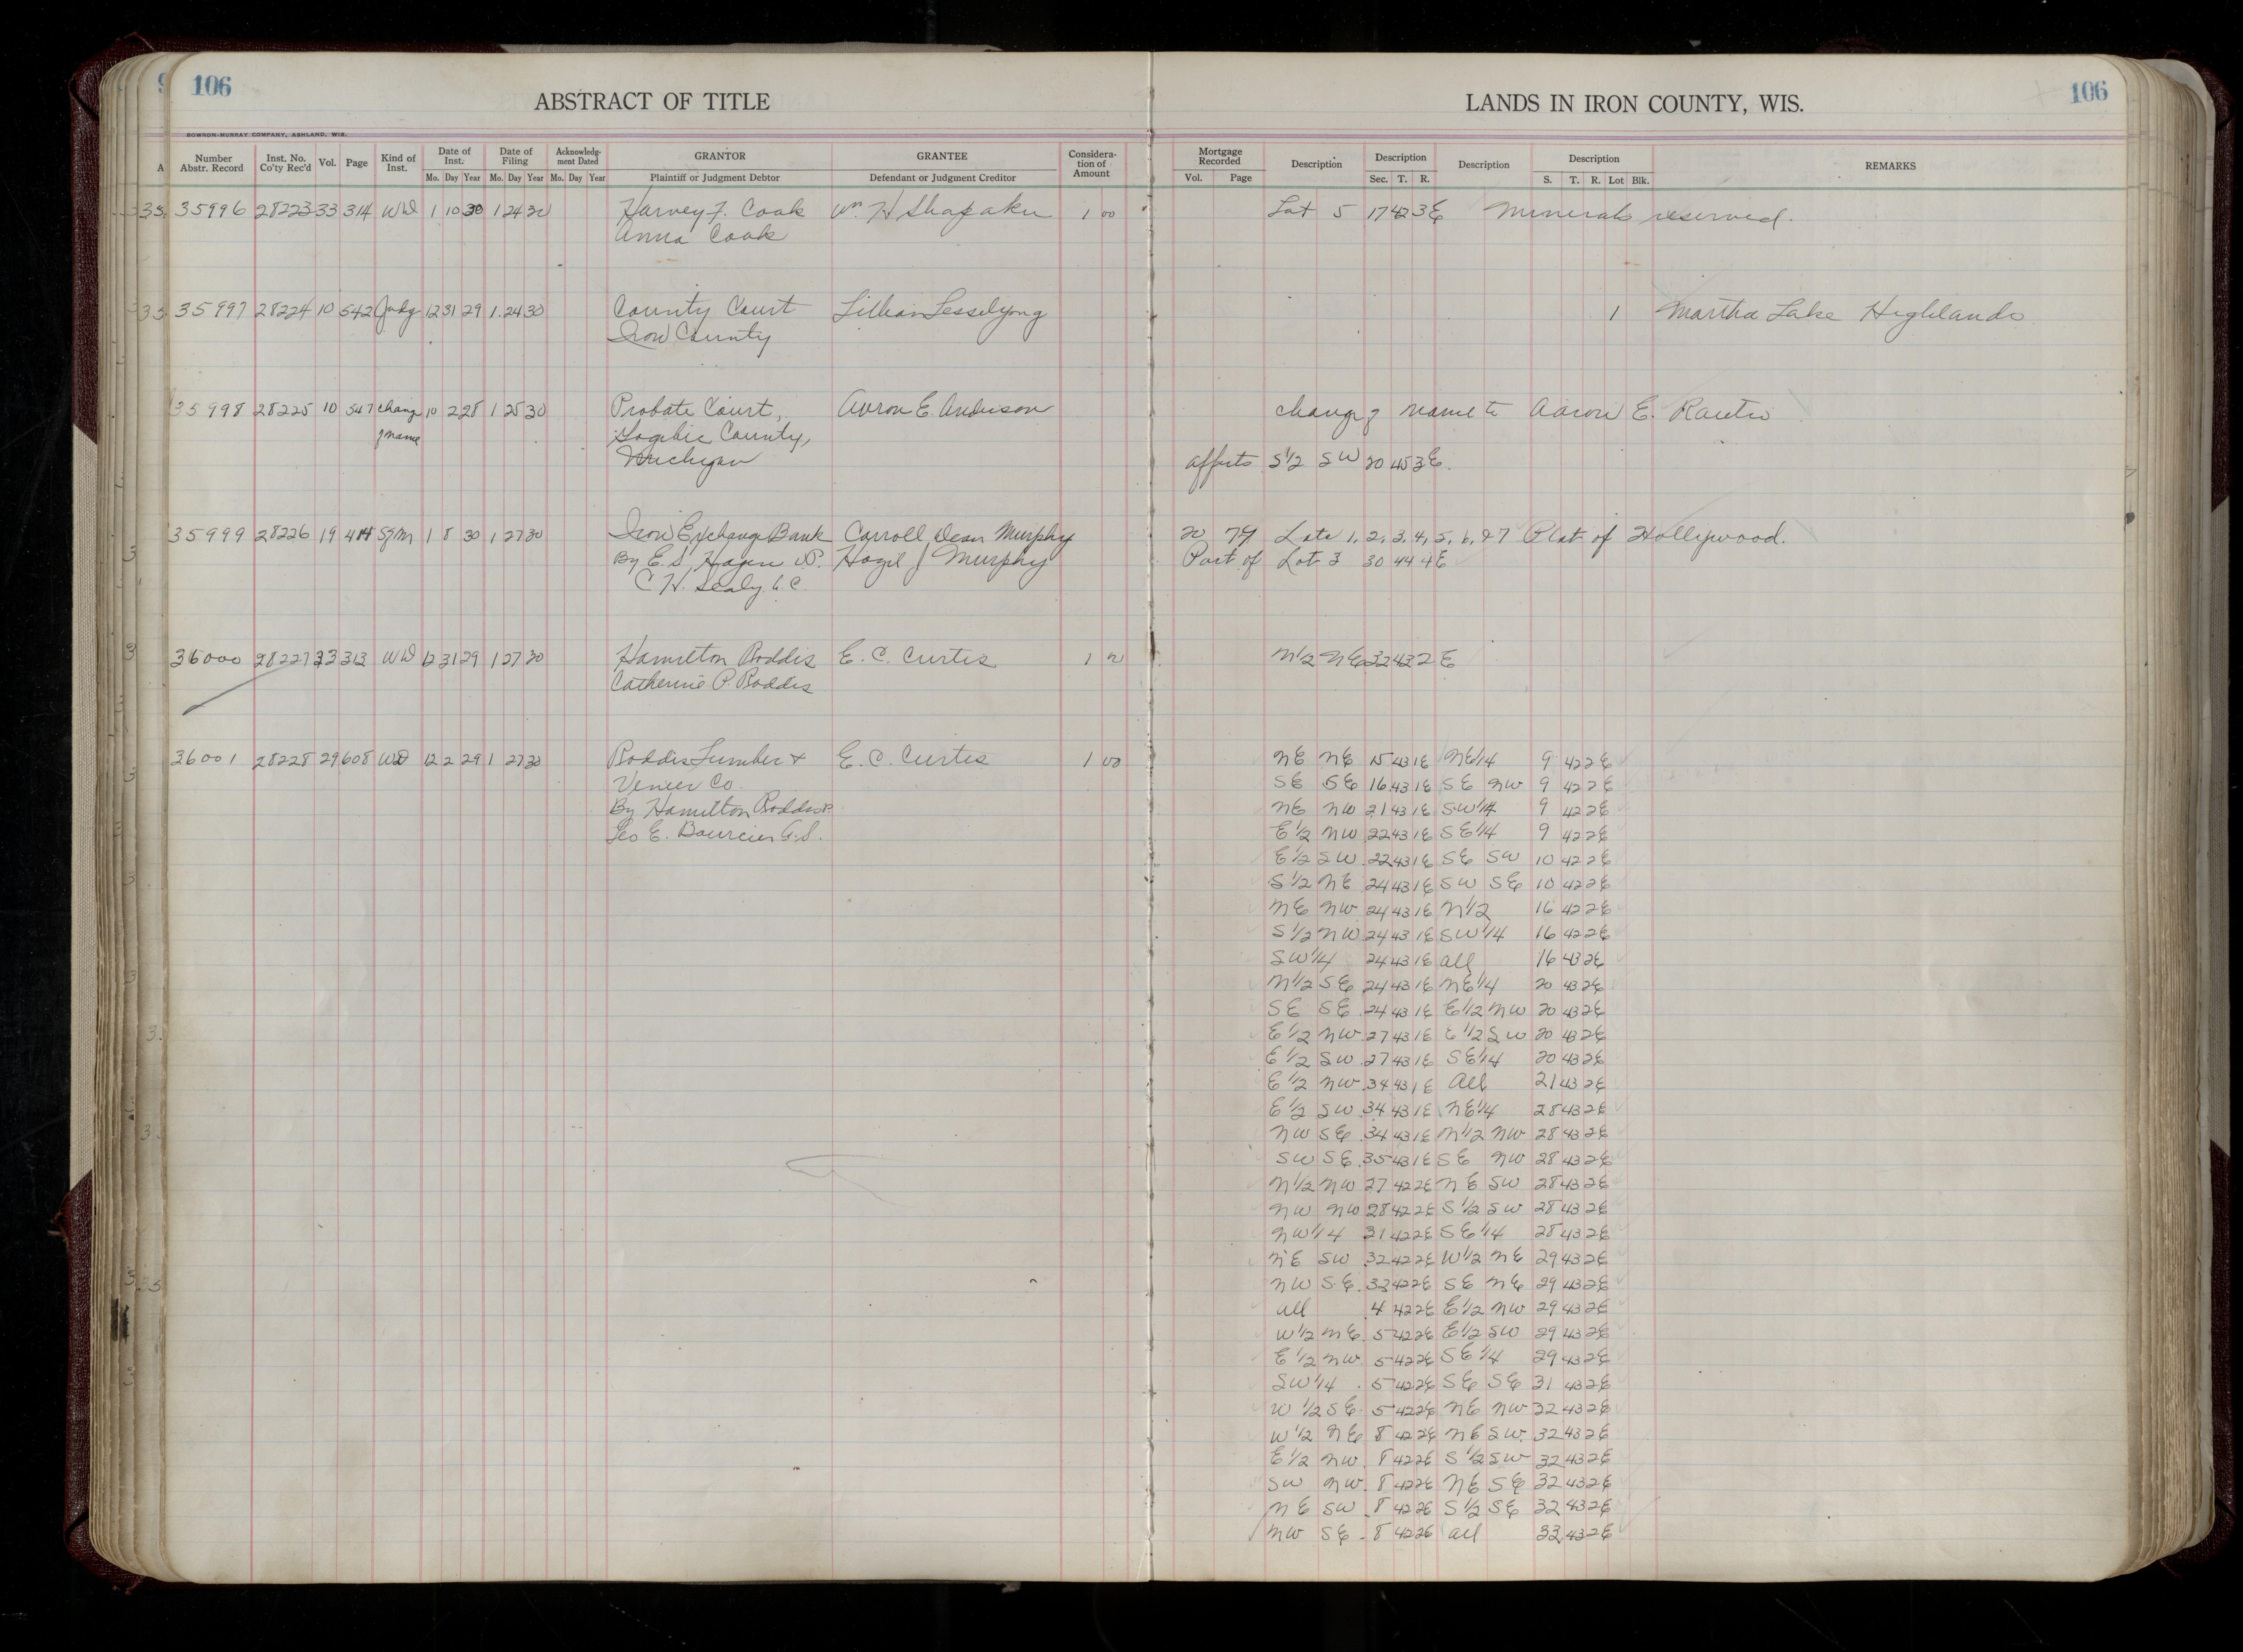 106
ABSTRACT OF TITLE
LANDS IN IRON COUNTY, WIS.
106
BOWRON-MURRAY COMPANY, ASHLAND, WIS.
Number Abstr. Record Inst. No. Co'ty Rec'd Vol. Page Kind of Inst. Date of Inst. Date of Filing Acknowledgment Dated GRANTOR GRANTEE Consideration of Amount Mortgage Recorded Description Description Description Description REMARKS
Mo. Day Year Mo. Day Year Mo. Day Year Plaintiff or Judgment Debtor Defendant or Judgment Creditor Vol. Page Sec. T. R. S. T. R. Lot Blk.
35996 28223 33 314 WD 1 10 30 1 24 30 Harvey F. Cook Wm H Shapaker 1 00 Lot 5 17 42 3E Minerals reserved.
Anna Cook
35997 28224 10 542 Judg 12 31 29 1 24 30 County Court Lillian Lesselyong 1 Martha Lake Highlands
Iron County
35998 28225 10 547 Chang 10 2 28 1 25 30 Probate Court, Aaron E. Anderson Chang of name to Aaron E. Rautio
of name Gogebic County,
Michigan affects S1/2 SW 20 45 3E.
35999 28226 19 414 Sgm 1 8 30 1 27 30 Iron Exchange Bank Carroll Dean Murphy 20 79 Lots 1, 2, 3, 4, 5, 6, & 7 Plat of Hollywood.
By E. S. Hagen V.P. Hazel J Murphy Part of Lot 3 30 44 4E
C H. Sealy
36000 28227 33 313 WD 12 31 29 1 27 30 Hamilton Roddis E. C. Curtis 1 N1/2 NE 32 43 2E
Catherine P. Roddis
36001 28228 29 608 WD 12 2 29 1 27 30 Roddis Lumber & E. C. Curtis 1 00 NE NE 15 43 1E NE1/4 9 42 2E
Veneer Co. SE SE 16 43 1E SE NW 9 42 2E
By Hamilton Roddis P. NE NW 21 43 1E SW1/4 9 42 2E
Geo E. Bourcier A.S. E1/2 NW 22 43 1E SE1/4 9 42 2E
E1/2 SW 22 43 1E SE SW 10 42 2E
S1/2 NE 24 43 1E SW SE 10 42 2E
NE NW 24 43 1E N1/2 16 42 2E
S1/2 NW 24 43 1E SW1/4 16 42 2E
SW1/4 24 43 1E all 16 43 2E
N1/2 SE 24 43 1E NE1/4 20 43 2E
SE SE 24 43 1E E1/2 NW 20 43 2E
E1/2 NW 27 43 1E E1/2 SW 20 43 2E
E1/2 SW 27 43 1E SE1/4 20 43 2E
E1/2 NW 34 43 1E All 21 43 2E
E1/2 SW 34 43 1E NE1/4 28 43 2E
NW SE 34 43 1E N1/2 NW 28 43 2E
SW SE 35 43 1E SE NW 28 43 2E
N1/2 NW 27 42 2E NE SW 28 43 2E
NW NW 28 42 2E S1/2 SW 28 43 2E
NW1/4 31 42 2E SE1/4 28 43 2E
NE SW 32 42 2E W1/2 NE 29 43 2E
NW SE 33 42 2E SE NE 29 43 2E
all 4 42 2E E1/2 NW 29 43 2E
W1/2 NE 5 42 2E E1/2 SW 29 43 2E
E1/2 NW 5 42 2E SE1/4 29 43 2E
SW1/4 5 42 2E SE SE 31 43 2E
W1/2 SE 5 42 2E NE NW 32 43 2E
W1/2 NE 8 42 2E NE SW 32 43 2E
E1/2 NW 8 42 2E S1/2 SW 32 43 2E
SW NW 8 42 2E NE SE 32 43 2E
NE SW 8 42 2E S1/2 SE 32 43 2E
NW SE 8 42 2E all 33 43 2E